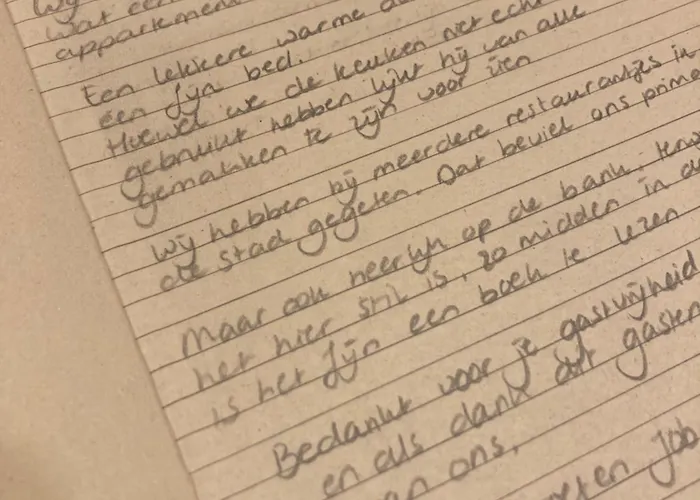 Wij
wat een
appartement
Een lekkere warme
een fijn bed.
Hoewel we de keuken niet echt
gebruikt hebben lijkt hij van alle
gemakken te zijn voor zien
Wij hebben bij meerdere restaurantjes in
de stad gegeten. Dat beviel ons prima
Maar ook heerlijk op de bank.
het hier stil is, zo midden in de
is het fijn een boek te lezen
Bedankt voor je gastvrijheid
en als dank dat gasten
van ons,
Job